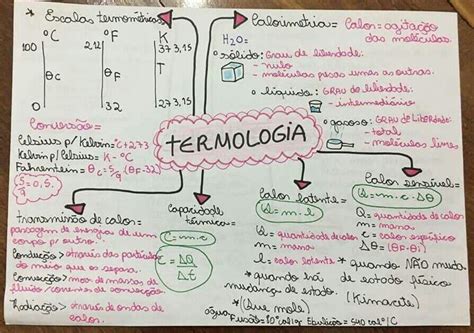 * Escalas termométricas
°C °F K
100 212 373,15
θc θF T
0 32 273,15
Conversão=
Celsius p/ Kelvin= °C+273
Kelvin p/ Celsius= K - °C
Fahrenheit= θc = 5/9 (θF-32)
5/9 = 0,5
Calorimetria= Calor= agitação
das moléculas.
H₂O=
sólido: Grau de liberdade:
- nulo
- moléculas presas umas as outras.
líquido: GRAU de liberdade:
- intermediário
gasoso: GRAU de Liberdade:
- total
- moléculas livres
TERMOLOGIA
Transmissão de calor=
passagem de energia de um
corpo p/ outro.
Condução> Através das partículas
do meio que os separa.
Convecção> mov. de massas de
fluído
Radiação> através de ondas de
calor.
Capacidade
térmica=
C=m.c
C= ΔQ
Δt
Calor latente=
Q=m.L
Q= quantidade de calor
m= massa
L= calor latente
* quando há
mudança de estado
Calor sensível=
Q=m.c.Δθ
Q= Quantidade de calor
m= massa
c= calor específico
Δθ= (θF-θi)
* quando NÃO muda
de estado físico
(Kimacete)
* (Que mole)
água= Fusão= Ebulição= 540 cal/°C